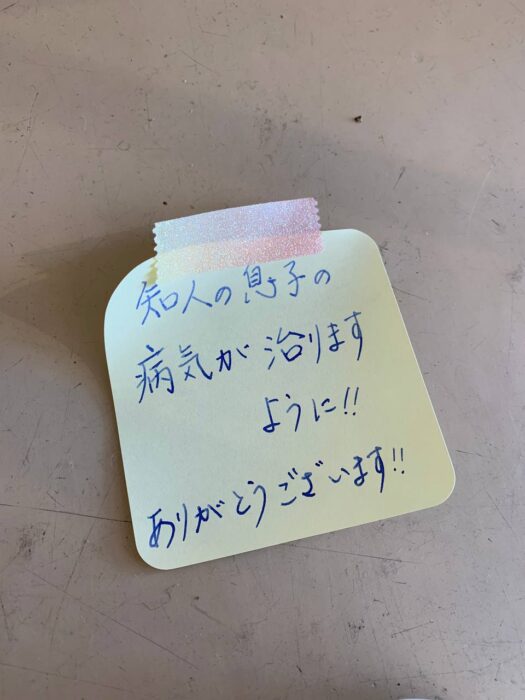 知人の息子の
病気が治ります
ように!!
ありがとうございます!!